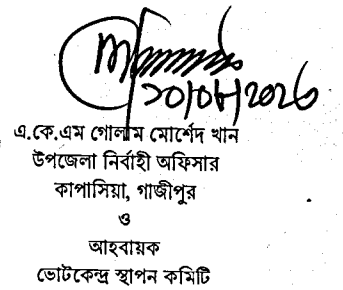 ১০/০৮/২০২৩
এ.কে.এম গোলাম মোর্শেদ খান
উপজেলা নির্বাহী অফিসার
কাপাসিয়া, গাজীপুর
ও
আহবায়ক
ভোটকেন্দ্র স্থাপন কমিটি